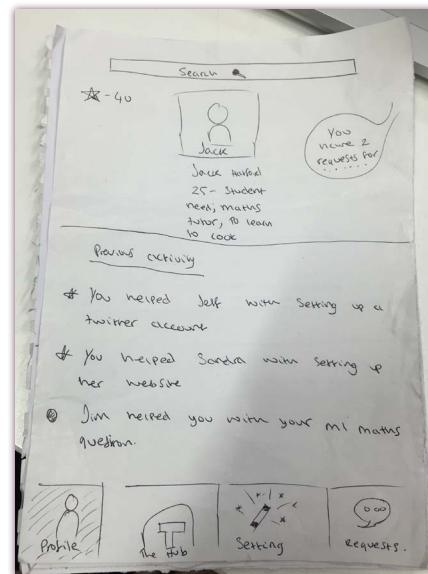 Search
- 40
Jack
You have 2
requests for
......
Jack
25 - Student
need, maths
tutor, to learn
to cook
Previous activity
You helped Jeff with setting up a
twitter account
You helped Sandra with setting up
her website
Jim helped you with your m1 maths
question.
Profile
The Hub
Setting
Requests.